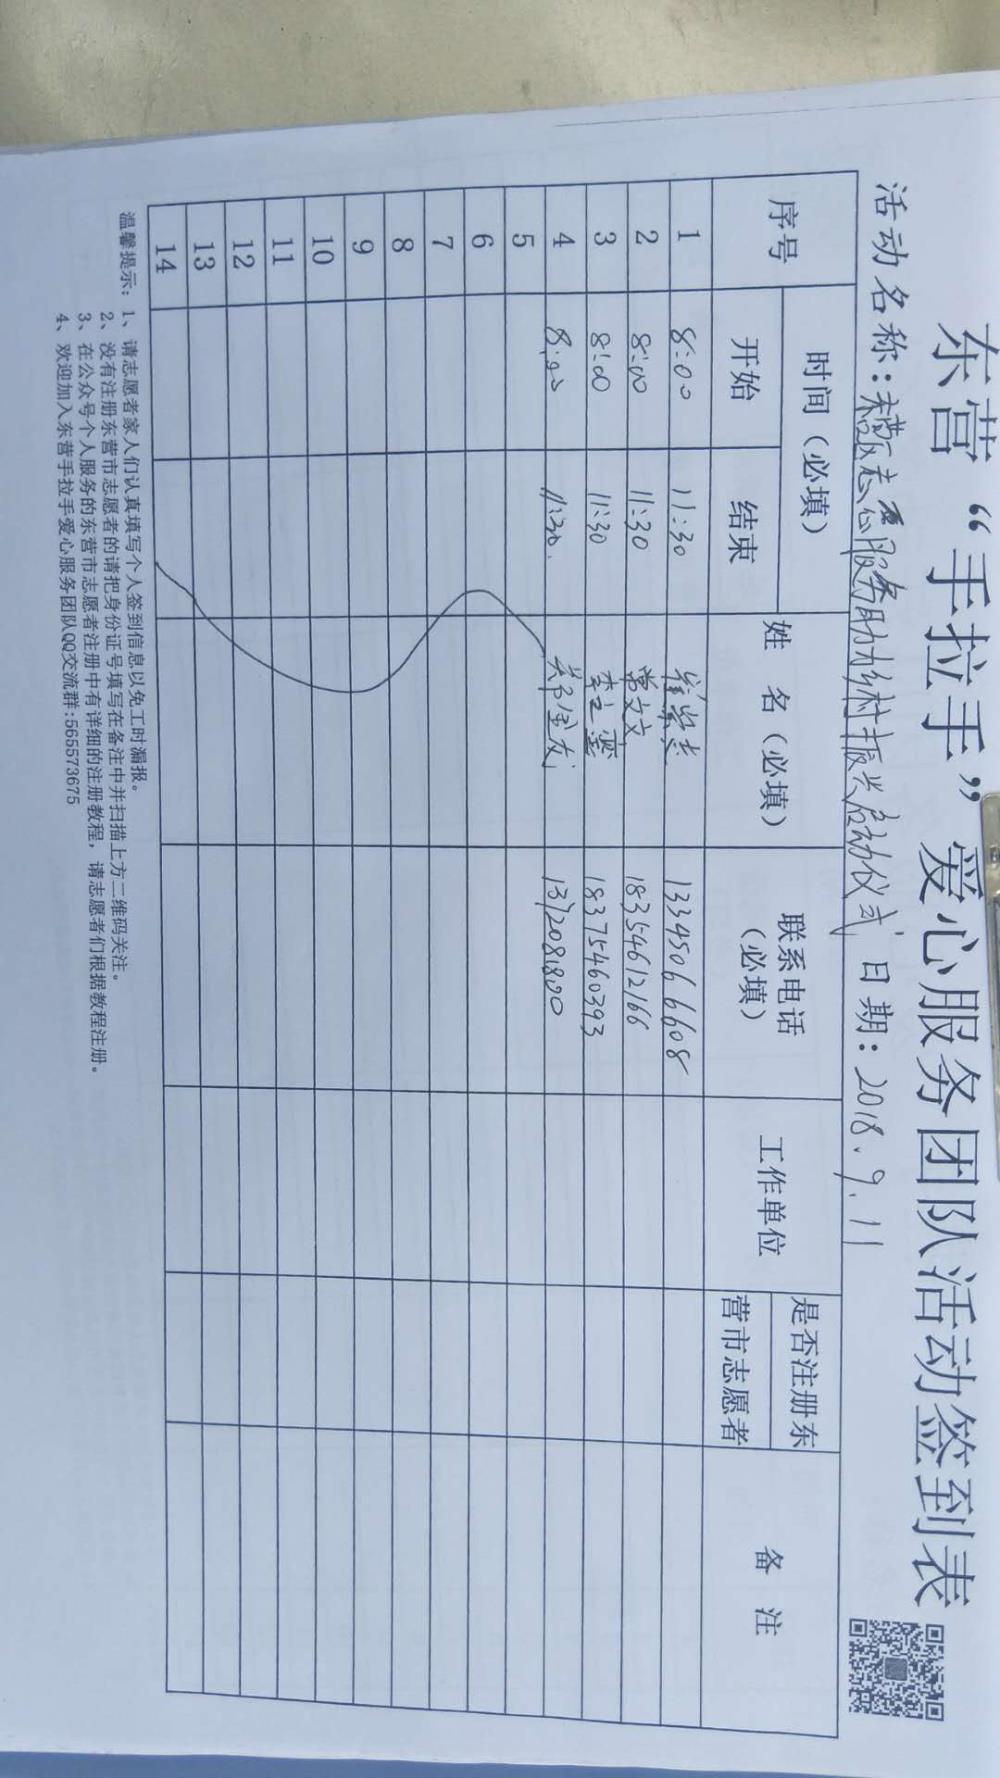 东营“手拉手”爱心服务团队活动签到表
活动名称：志愿服务助力乡村振兴启动仪式 日期：2018.9.11
序号 时间（必填） 姓 名（必填） 联系电话（必填） 工作单位 是否注册东营市志愿者 备 注
开始 结束
1 8:00 11:30 13345066608
2 8:00 11:30 常文文 18354612166
3 8:00 11:30 18375460393
4 8:00 11:30
5
6
7
8
9
10
11
12
13
14
温馨提示：1、请志愿者家人们认真填写个人签到信息以免工时漏报。
2、没有注册东营市志愿者的请把身份证号填写在备注中并扫描上方二维码关注。
3、在公众号个人服务的东营市志愿者注册中有详细的注册教程，请志愿者们根据教程注册。
4、欢迎加入东营手拉手爱心服务团队QQ交流群:565573675